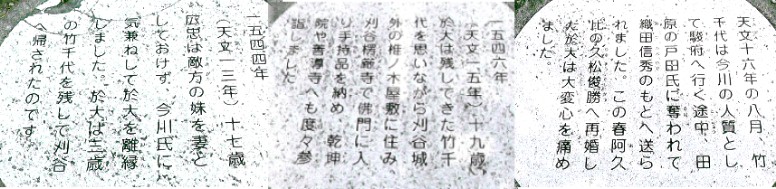 一五四四年
(天文一三年) 十七歳
広忠は敵方の妹を妻と
しておけず、今川氏に
気兼ねして於大を離縁
しました。於大は三歳
の竹千代を残して刈谷
へ帰されたのです。
一五四六年
(天文一五年) 十九歳
於大は残してきた竹千
代を思いながら刈谷城
外の椎ノ木屋敷に住み
刈谷楞厳寺で佛門に入
り手持品を納め 乾坤
院や善導寺へも度々参
詣しました
天文十六年の八月 竹
千代は今川の人質とし
て駿府へ行く途中、田
原の戸田氏に奪われて
織田信秀のもとへ送ら
れました。この春阿久
比の久松俊勝へ再婚し
た於大は大変心を痛め
ました